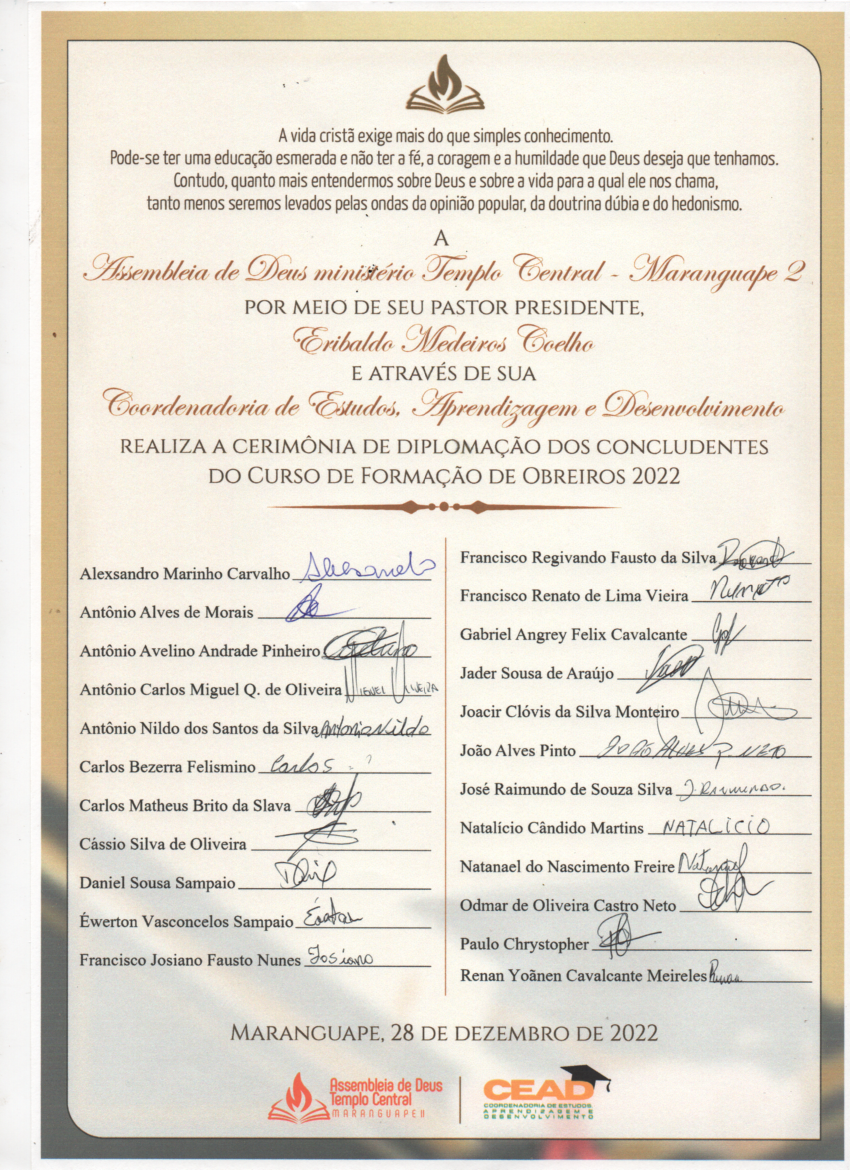 A vida cristã exige mais do que simples conhecimento.
Pode-se ter uma educação esmerada e não ter a fé, a coragem e a humildade que Deus deseja que tenhamos.
Contudo, quanto mais entendermos sobre Deus e sobre a vida para a qual ele nos chama,
tanto menos seremos levados pelas ondas da opinião popular, da doutrina dúbia e do hedonismo.
A
Assembleia de Deus ministério Templo Central - Maranguape 2
POR MEIO DE SEU PASTOR PRESIDENTE,
Eribaldo Medeiros Coelho
E ATRAVÉS DE SUA
Coordenadoria de Estudos, Aprendizagem e Desenvolvimento
REALIZA A CERIMÔNIA DE DIPLOMAÇÃO DOS CONCLUDENTES
DO CURSO DE FORMAÇÃO DE OBREIROS 2022
Alexsandro Marinho Carvalho
Antônio Alves de Morais
Antônio Avelino Andrade Pinheiro
Antônio Carlos Miguel Q. de Oliveira Miguel Oliveira
Antônio Nildo dos Santos da Silva Antonio Nildo
Carlos Bezerra Felismino Carlos
Carlos Matheus Brito da Slava
Cássio Silva de Oliveira
Daniel Sousa Sampaio
Éwerton Vasconcelos Sampaio
Francisco Josiano Fausto Nunes Josiano
Francisco Regivando Fausto da Silva
Francisco Renato de Lima Vieira
Gabriel Angrey Felix Cavalcante
Jader Sousa de Araújo
Joacir Clóvis da Silva Monteiro
João Alves Pinto JOÃO ALVES P. NETO
José Raimundo de Souza Silva J. Raimundo.
Natalício Cândido Martins NATALICIO
Natanael do Nascimento Freire Natanael
Odmar de Oliveira Castro Neto
Paulo Chrystopher
Renan Yoãnen Cavalcante Meireles Renan
MARANGUAPE, 28 DE DEZEMBRO DE 2022
Assembleia de Deus
Templo Central
MARANGUAPE II
CEAD
COORDENADORIA DE ESTUDOS
APRENDIZAGEM E
DESENVOLVIMENTO